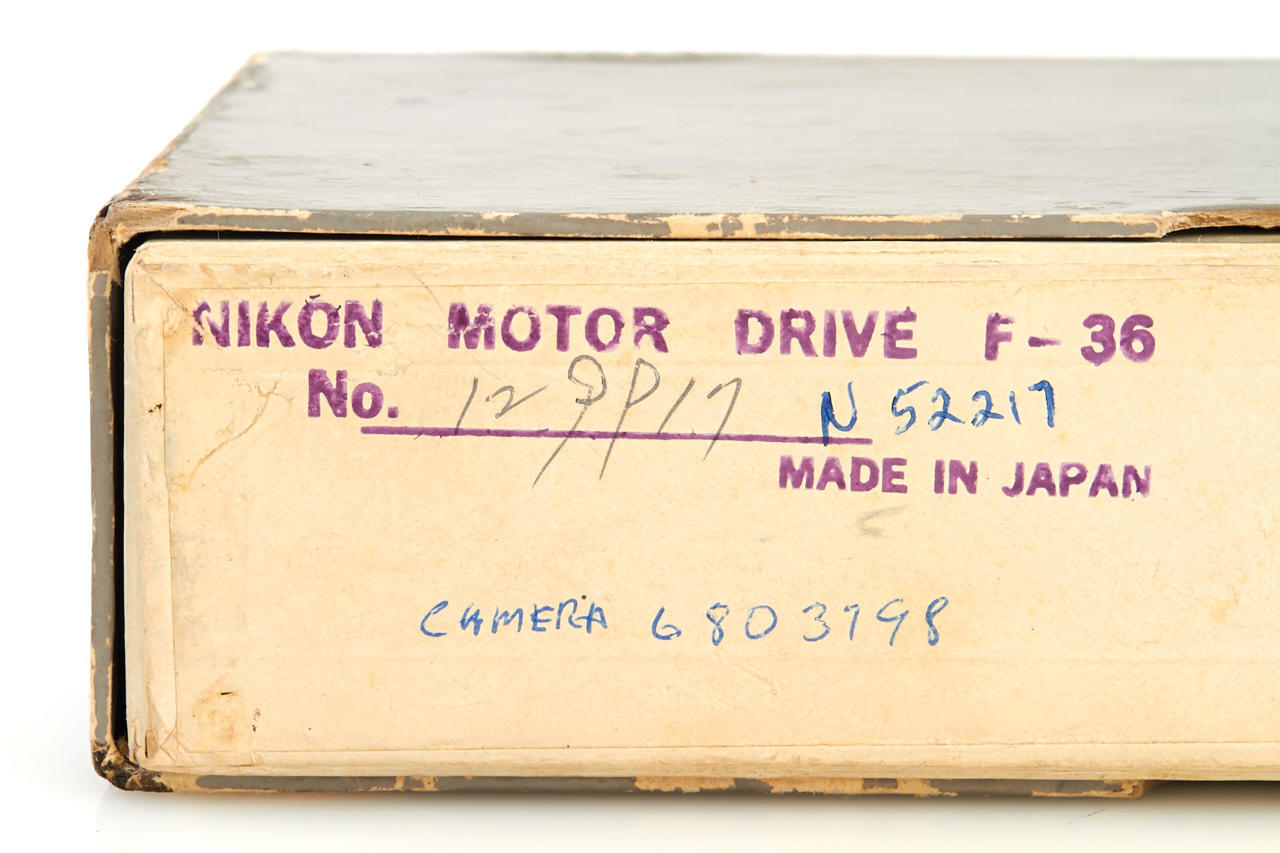 NIKON MOTOR DRIVE F-36
No. N 52217
MADE IN JAPAN
CAMERA 6803798